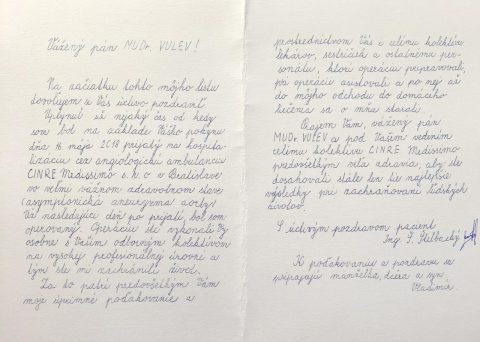 Vážený pán MUDr. VULEV!
Na začiatku tohto môjho listu
dovoľujem si Vás úctivo pozdraviť.
Uplynul už nejaký čas od kedy
som bol na základe Vášho pokynu
dňa 16. mája 2018 prijatý na hospita-
lizáciu cez angiologickú ambulanciu
CINRE Medissimo s.r.o v Bratislave
vo veľmi vážnom zdravotnom stave
(asymptonická aneuryzma aorty)
Už nasledujúci deň po prijatí bol som
operovaný. Operáciu ste vykonali Vy
osobne s Vašim odborným kolektívom
na vysokej profesionálnej úrovni a
tým ste mi zachránili život.
Za to patrí predovšetkým Vám
moje úprimné poďakovanie a
prostredníctvom Vás i celému kolektívu
lekárov, sestričiek a ostatnému per-
sonálu, ktorí operáciu pripravovali,
pri operácii asistovali a po nej až
do môjho odchodu do domáceho
liečenia sa o mňa starali.
Prajem Vám, vážený pán
MUDr. VULEV a pod Vašim vedením
celému kolektívu CINRE Medissimo
predovšetkým veľa zdravia, aby ste
dosahovali stále len tie najlepšie
výsledky pri zachraňovaní ľudských
životov.
S úctivým pozdravom pacient
Ing. J.
K poďakovaniu a pozdravu sa
pripájajú manželka, dcéra a syn
Vladimír.